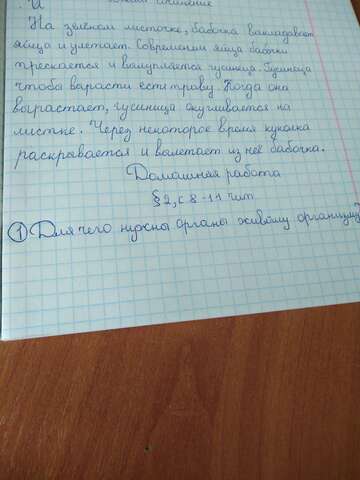 И сочинение
На зелёном листочке, бабочка выкладывает
яйца и улетает. Со временем яйца бабочки
трескается и вылупляется гусеница. Гусеница
чтобы вырасти ест траву. Когда она
вырастает, гусиница окучивается на
листке. Через некоторое время куколка
раскрывается и вылетает из неё бабочка.
Домашняя работа
§2, с 8-11 чит
① Для чего нужны органы живому организму?